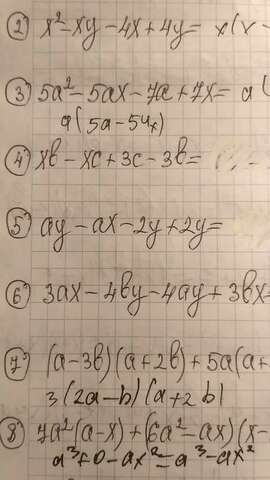 2) x² - xy - 4x + 4y = x(x -
3) 5a² - 5ax - 7a + 7x = a(
a(5a - 54x)
4) xb - xc + 3c - 3b =
5) ay - ax - 2y + 2y =
6) 3ax - 4by - 4ay + 3bx
7) (a - 3b)(a + 2b) + 5a(a +
3(2a - b)(a + 2b)
8) 7a²(a - x) + (6a² - ax)(x -
a³ + 0 - ax² = a³ - ax²